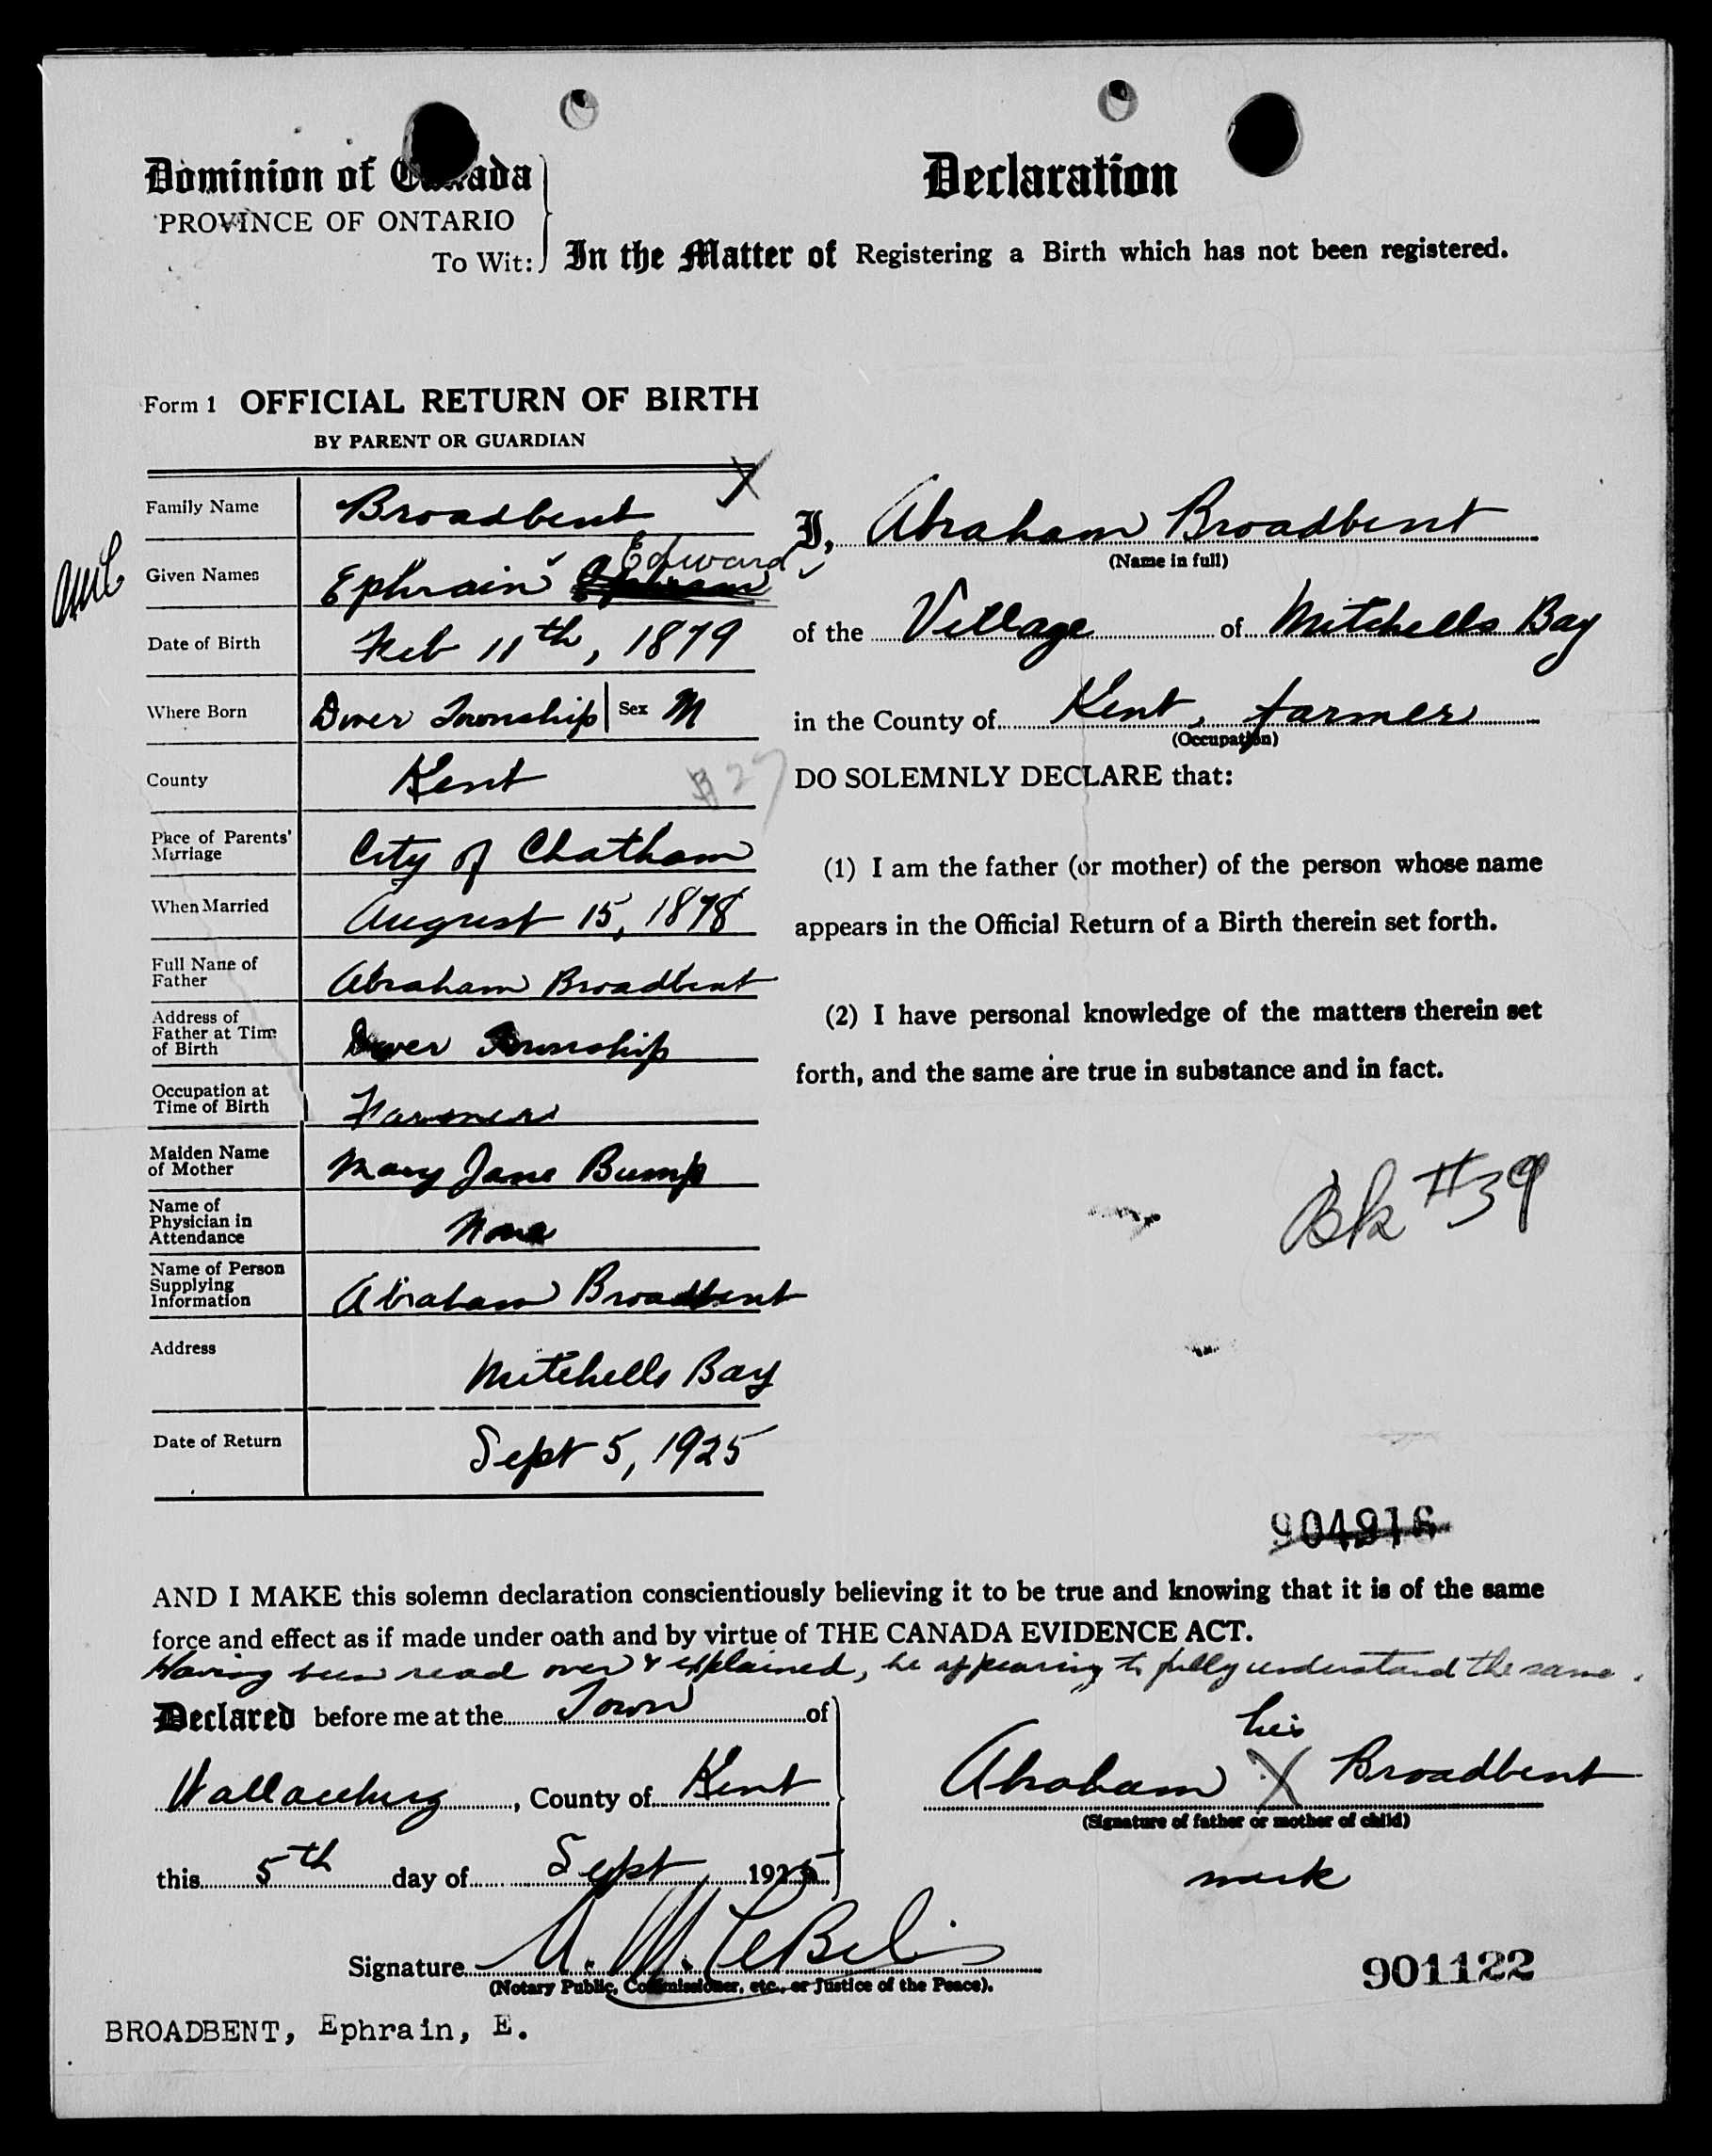 Dominion of Canada
PROVINCE OF ONTARIO
To Wit:
Declaration
In the Matter of Registering a Birth which has not been registered.
Form 1 OFFICIAL RETURN OF BIRTH
BY PARENT OR GUARDIAN
X
Family Name Broadbent
Given Names Ephrain Edward
Date of Birth Feb 11th, 1879
Where Born Dover Township Sex M
County Kent
27
Place of Parents' Marriage City of Chatham
When Married August 15, 1878
Full Name of Father Abraham Broadbent
Address of Father at Time of Birth Dover Township
Occupation at Time of Birth Farmer
Maiden Name of Mother Mary Jane Bump
Name of Physician in Attendance None
Name of Person Supplying Information Abraham Broadbent
Address Mitchells Bay
Date of Return Sept 5, 1925
I, Abraham Broadbent
(Name in full)
of the Village of Mitchells Bay
in the County of Kent, farmer
(Occupation)
DO SOLEMNLY DECLARE that:
(1) I am the father (or mother) of the person whose name
appears in the Official Return of a Birth therein set forth.
(2) I have personal knowledge of the matters therein set
forth, and the same are true in substance and in fact.
Bk #39
904916
AND I MAKE this solemn declaration conscientiously believing it to be true and knowing that it is of the same
force and effect as if made under oath and by virtue of THE CANADA EVIDENCE ACT.
Having been read over & explained, he appearing to fully understand the same.
Declared before me at the Town of
Wallaceburg, County of Kent
this 5th day of Sept 1925
his
Abraham X Broadbent
(Signature of father or mother of child)
mark
Signature
(Notary Public, Commissioner, etc., or Justice of the Peace).
901122
BROADBENT, Ephrain, E.